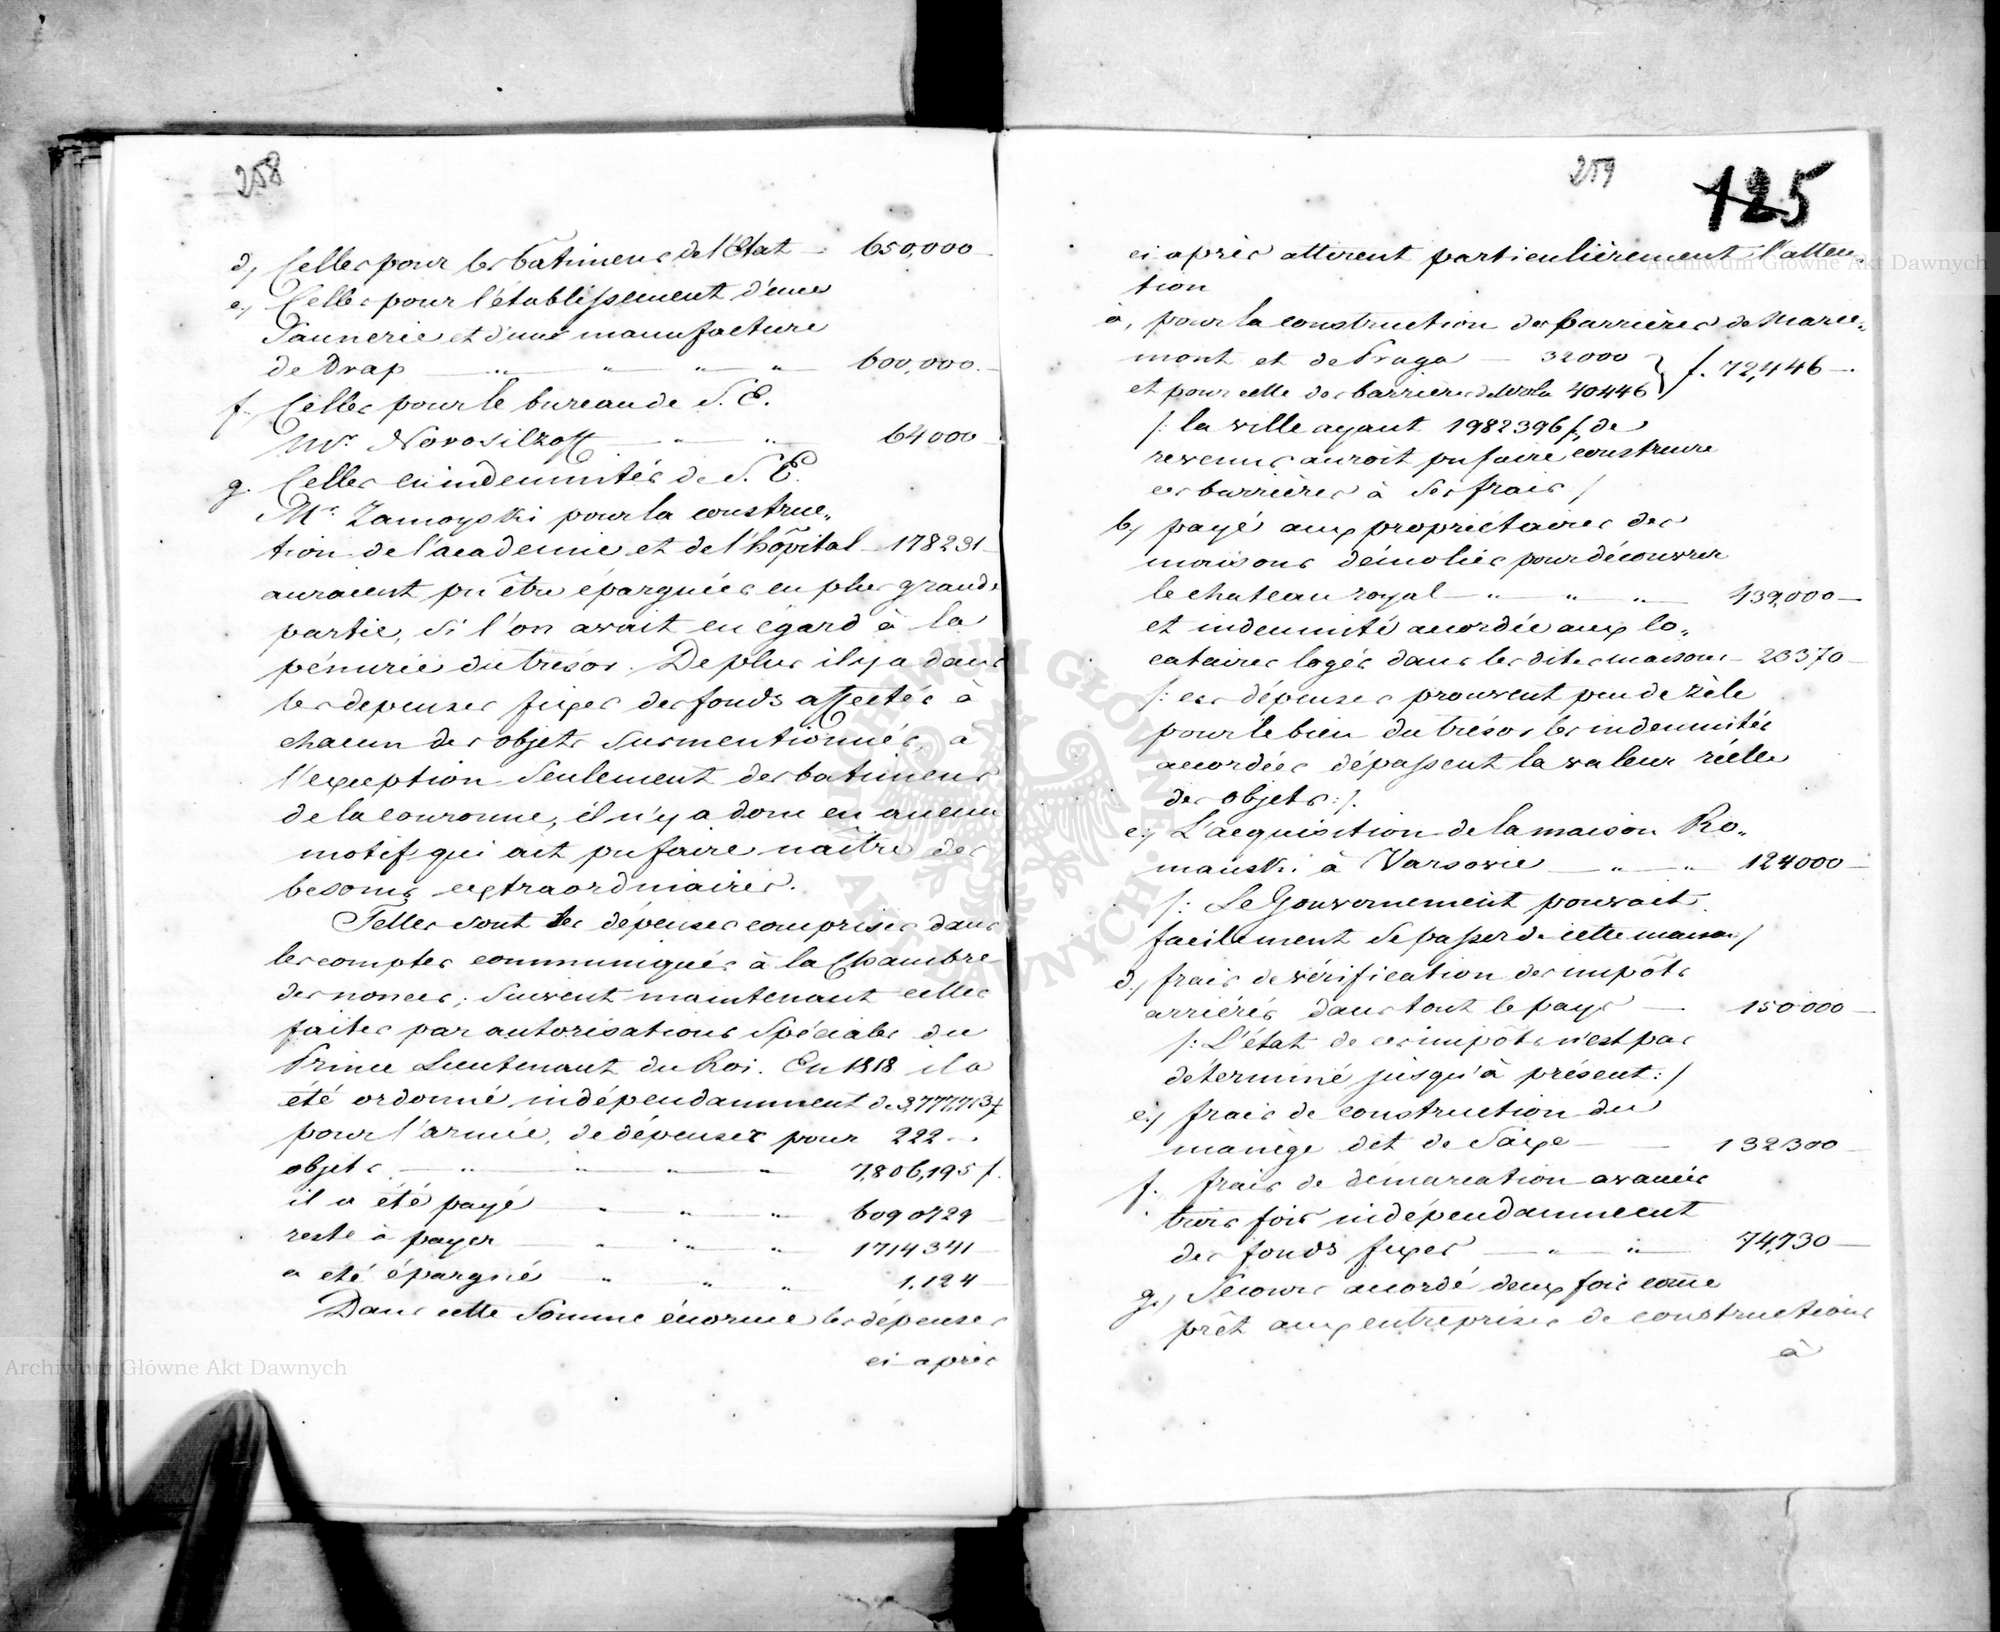 258
d, Celles pour les bâtimens de l'Etat — 650,000 —
e, Celles pour l'établissement d'une
Tannerie et d'une manufacture
de Drap — " — " — " — " — 600,000. —
f. Celles pour le bureau de S. E.
Mr. Novosiltzoff — " — " — 64000 —
g. Celles en indemnités de S. E.
Mr. Zamoyski pour la construc„
tion de l'academie et de l'hôpital — 178231 —
auraient pu être épargnées en plus grande
partie, si l'on avait eu égard à la
pénurie du trésor. De plus il y a dans
les depenses fixes des fonds affectés à
chacun des objets surmentionnés, à
l'exception seulement des batimens
de la couronne, il n'y a donc eu aucun
motif qui ait pu faire naître des
besoins extraordinaires.
Telles sont les dépenses comprises dans
les comptes communiqués à la Chambre
des nonces; suivent maintenant celles
faites par autorisations spéciales du
Prince Lieutenant du Roi. En 1818 il a
été ordonné indépendamment de 3,777,713 f
pour l'armée, de dépenser pour 222 —
objets — " — " — " — " — 7,806,195 f.
il a été payé — " — " — " — 6090729 —
reste à payer — " — " — " — 1714341 —
a été épargné — " — " — " — 1.124 —
Dans cette somme énorme les dépenses
ci-après
259
125
ci après attirent particulièrement l'atten„
tion
a, pour la construction des barrières de Marie„
mont et de Praga — 32000 } f. 72,446 —.
et pour celle des barrieres de Wola 40446
/: la ville ayant 1982396 f. de
revenus auroit pu faire construire
ces barrières à ses frais /
b, payé aux propriétaires des
maisons démolies pour découvrir
le chateau royal — " — " — " — 439,000 —
et indemnité accordée aux lo„
cataires logés dans les dites maisons — 23370 —
/: ces dépenses prouvent peu de zèle
pour le bien du trésor les indemnités
accordées dépassent la valeur réelle
des objets :/.
c, L'acquisition de la maison Ro„
mański à Varsovie — " — " — 124000 —
/: Le Gouvernement pouvait
facilement se passer de cette maison /
d, frais de vérification des impôts
arriérés dans tout le pays — 150000 —
/: L'état de ces impôts n'est pas
déterminé jusqu'à présent :/
e, frais de construction du
manège dit de Saxe — 132300 —
f. frais de démarcation avancés
trois fois indépendamment
des fonds fixes — " — " — 74,730 —
g, Secours accordé deux fois come
prêt aux entreprises de constructions
à
Archiwum Główne Akt Dawnych
Archiwum Główne Akt Dawnych
ARCHIWUM GŁÓWNE AKT DAWNYCH